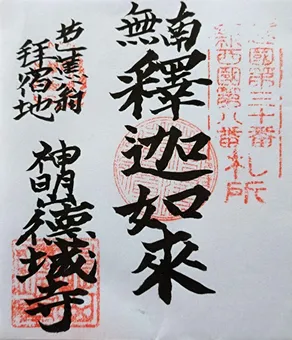 國第三十番
西國第八番
札所
南無
釋迦如來
芭蕉翁
拝宿地
神明山德城寺